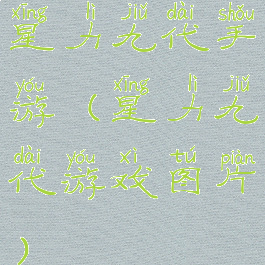 xīng lì jiǔ dài shǒu
星力九代手
yóu xīng lì jiǔ
游（星力九
dài yóu xì tú piàn
代游戏图片
）